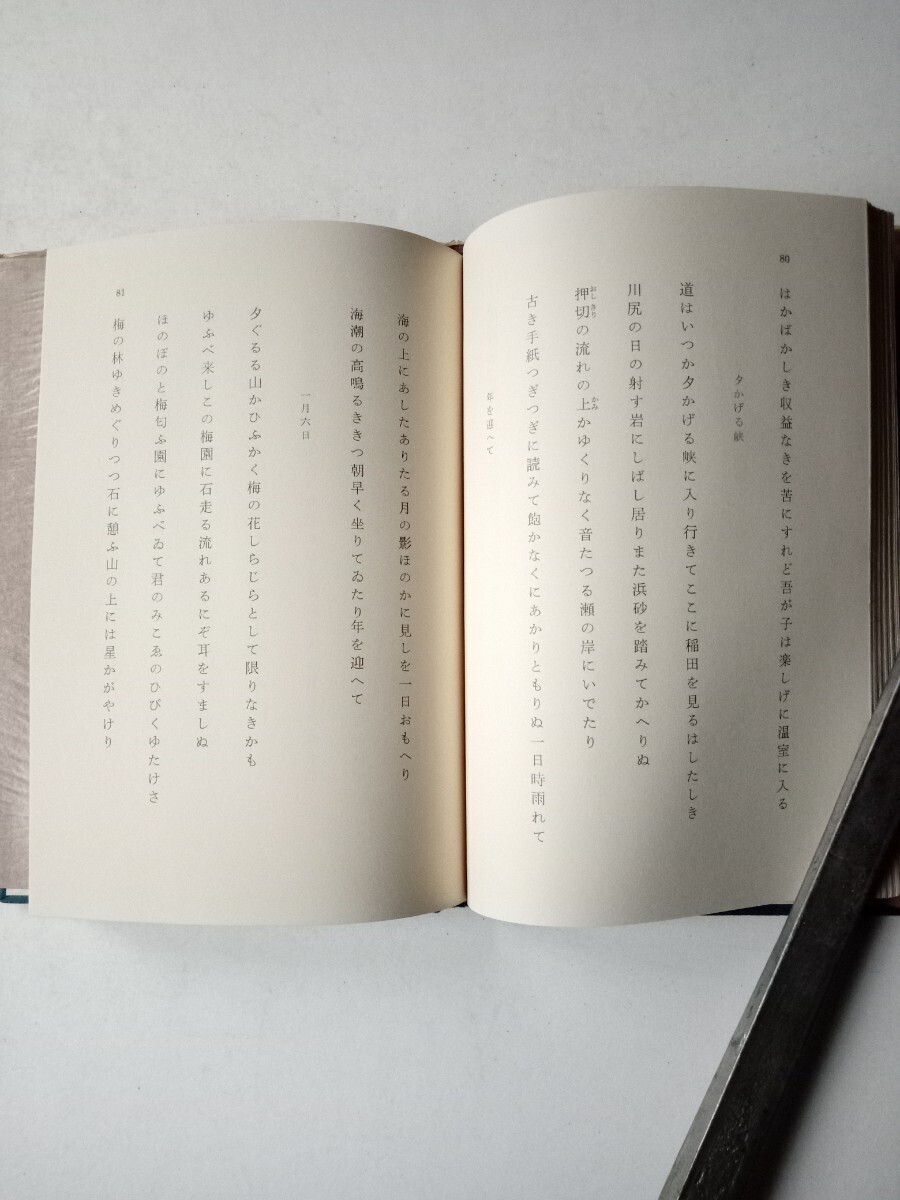 80
はかばかしき収益なきを苦にすれど吾が子は楽しげに温室に入る
夕かげる峡
道はいつか夕かげる峡に入り行きてここに稲田を見るはしたしき
川尻の日の射す岩にしばし居りまた浜砂を踏みてかへりぬ
押切の流れの上かゆくりなく音たつる瀬の岸にいでたり
おしきり
かみ
古き手紙つぎつぎに読みて飽かなくにあかりともりぬ一日時雨れて
年を迎へて
海の上にあしたありたる月の影ほのかに見しを一日おもへり
海潮の高鳴るききつ朝早く坐りてゐたり年を迎へて
一月六日
夕ぐるる山かひふかく梅の花しらじらとして限りなきかも
ゆふべ来しこの梅園に石走る流れあるにぞ耳をすましぬ
ほのぼのと梅匂ふ園にゆふべゐて君のみこゑのひびくゆたけさ
梅の林ゆきめぐりつつ石に憩ふ山の上には星かがやけり
81